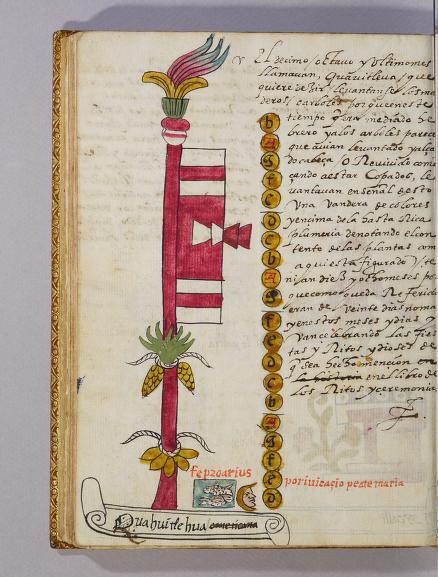 El decimo, octauo y Ultimomes
llamauan, Quauitleua, que
quiere dezir, leuantanse los ma
deros, o arboles, porque en este
tiempo que era mediado de
brero ya los arboles parece
que auian leuantado ya la
cabeça, o Reuiuido come
çando a estar Copados, le
uantauan en señal desto
Una vandera de colores
y encima de la hasta Rica
plumeria denotando el con
tento de las plantas com
aqui esta figurado y te
nian diez y ocho meses po
que como queda Referido
eran de Veinte dias no mas
y en estos meses y dias
Van celebrando las fies
tas y Ritos y dioses de
q sea hecho mencion
la historia en el libro de
los Ritos y ceremonias
b
A
g
f
e
d
c
b
A
g
f
e
d
c
b
A
g
f
e
d
febroarius
poriuicaçio pente maria
Quahuitlehua